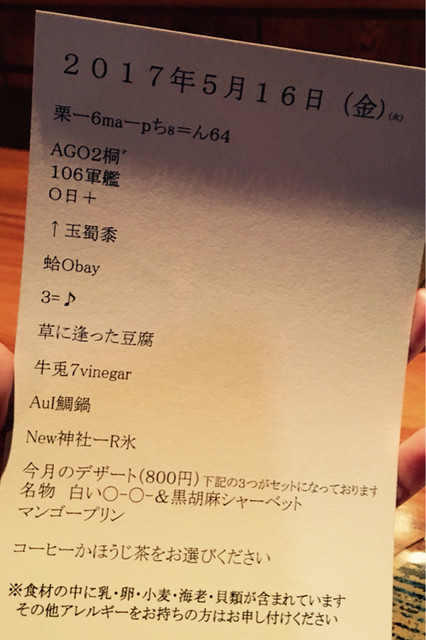 2017年5月16日（金）(火)
栗ー6maーpち8=ん64
AGO2桐゛
106軍艦
O日＋
↑玉蜀黍
蛤Obay
3=♪
草に逢った豆腐
牛兎7vinegar
AuI鯛鍋
New神社ーR氷
今月のデザート(800円)下記の3つがセットになっております
名物 白い〇-〇-&黒胡麻シャーベット
マンゴープリン
コーヒーかほうじ茶をお選びください
※食材の中に乳・卵・小麦・海老・貝類が含まれています
その他アレルギーをお持ちの方はお申し付けください